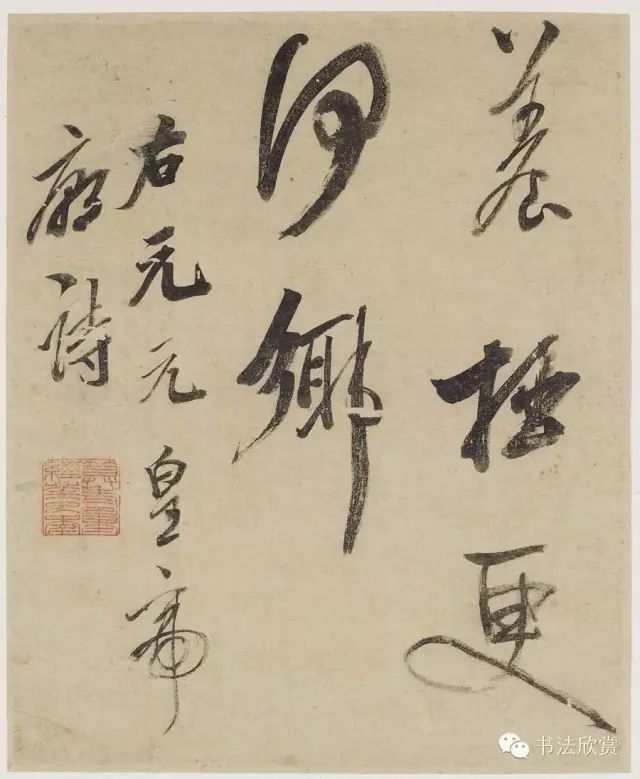 養拙更
何鄉
右元元皇帝
廟詩
书法欣赏